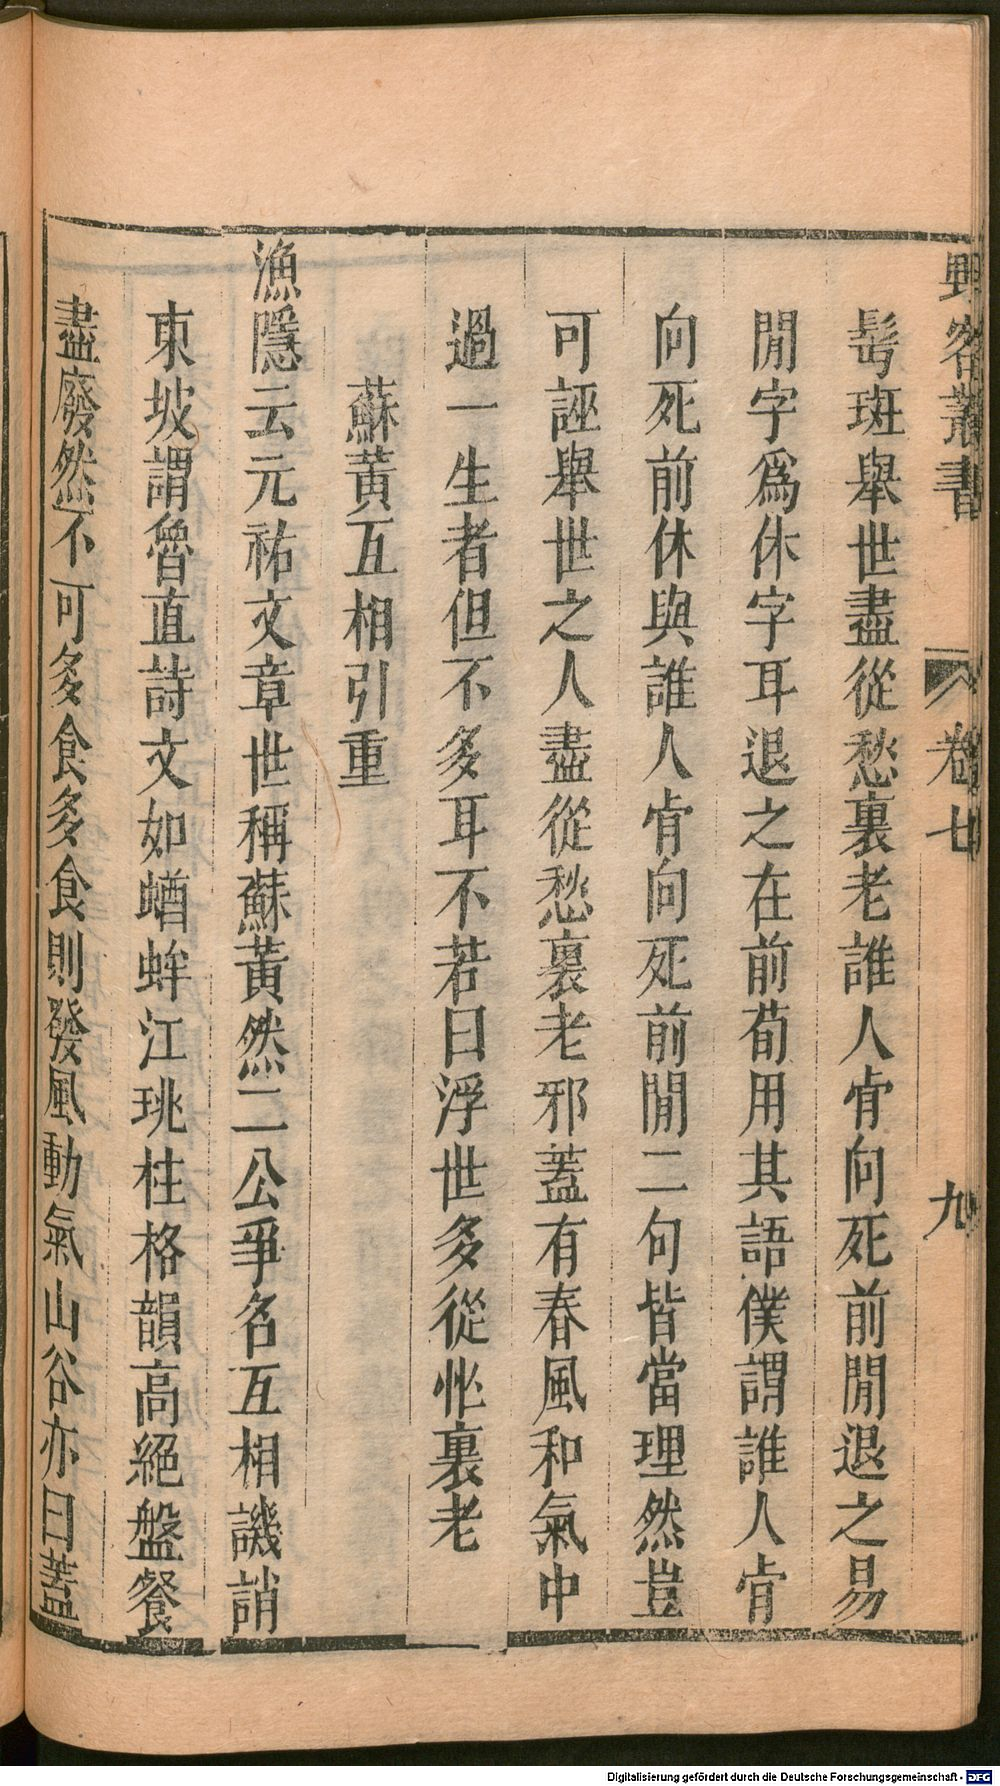 野客叢書 卷七 九
髩斑舉世盡從愁裏老誰人肯向死前閒退之易
閒字爲休字耳退之在前荀用其語僕謂誰人肯
向死前休與誰人肯向死前閒二句皆當理然豈
可誣舉世之人盡從愁裏老邪蓋有春風和氣中
過一生者但不多耳不若曰浮世多從忙裏老
蘇黃互相引重
漁隱云元祐文章世稱蘇黃然二公爭名互相譏誚
東坡謂魯直詩文如蝤蛑江珧柱格韻高絕盤餐
盡廢然不可多食多食則發風動氣山谷亦曰蓋
Digitalisierung gefördert durch die Deutsche Forschungsgemeinschaft - DFG